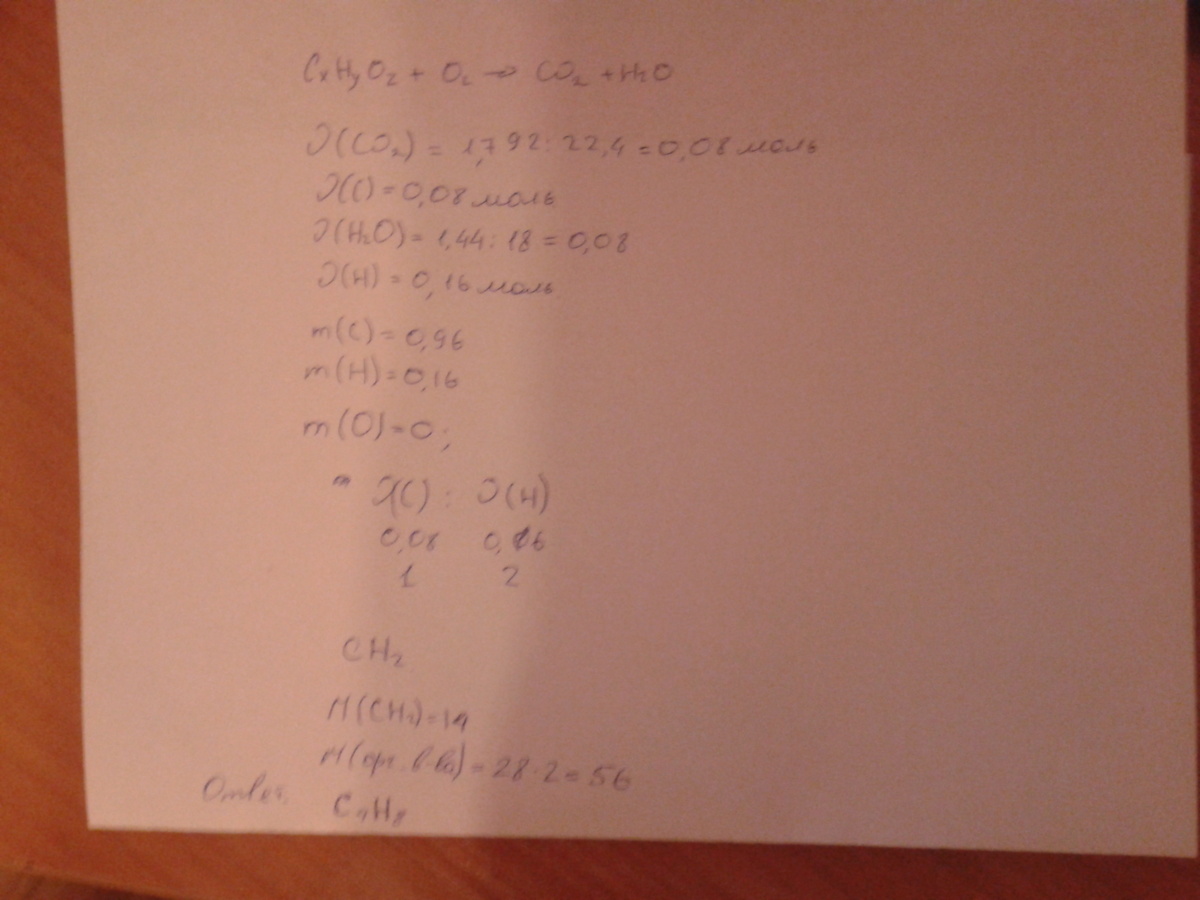 CxHyOz + O2 → CO2 + H2O
ν(CO2) = 1,792 : 22,4 = 0,08 моль
ν(C) = 0,08 моль
ν(H2O) = 1,44 : 18 = 0,08
ν(H) = 0,16 моль
m(C) = 0,96
m(H) = 0,16
m(O) = 0;
m ν(C) : ν(H)
0,08 0,16
1 2
CH2
M(CH2) = 14
M(орг. в-ва) = 28 · 2 = 56
Ответ. C4H8